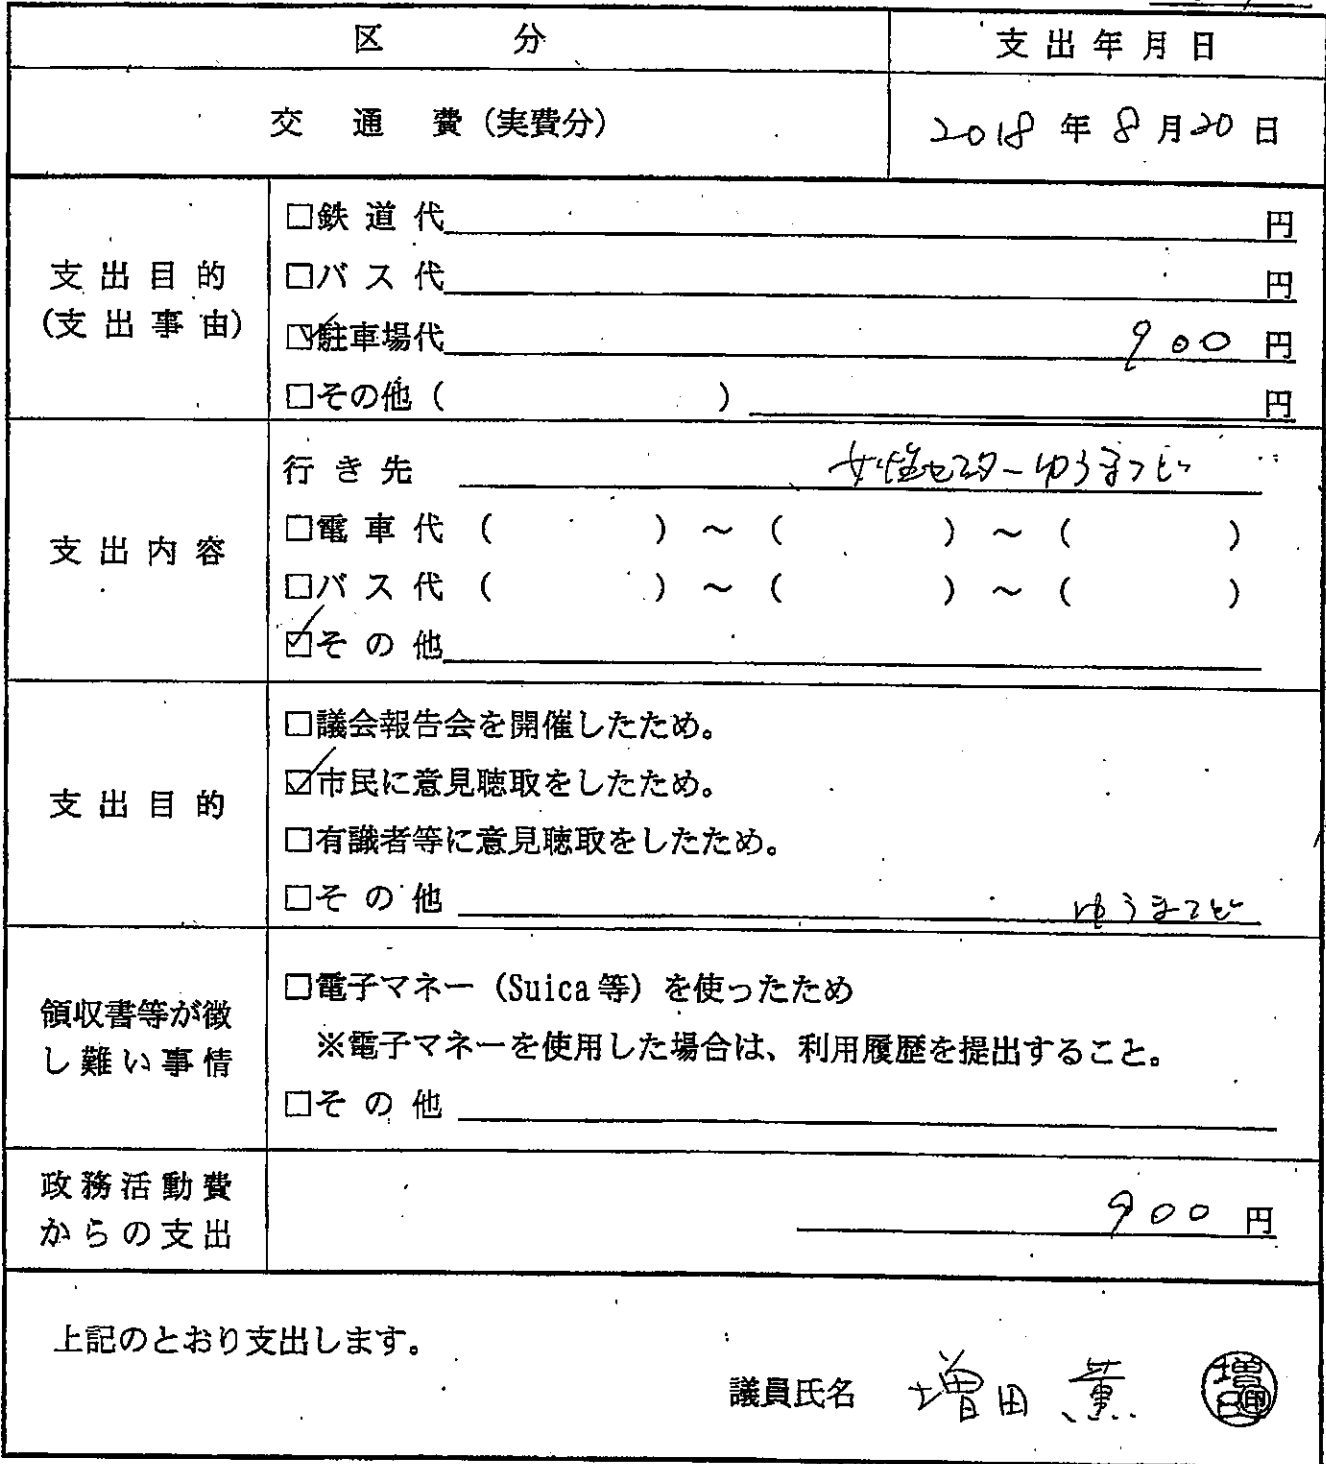 区 分 支出年月日
交 通 費（実費分） 2018 年 8 月 20 日
支出目的
（支出事由）
□鉄道代 円
□バス代 円
☑駐車場代 900 円
□その他（ ） 円
支出内容
行き先 女性センターゆうまつど
□電車代（ ）～（ ）～（ ）
□バス代（ ）～（ ）～（ ）
☑その他
支出目的
□議会報告会を開催したため。
☑市民に意見聴取をしたため。
□有識者等に意見聴取をしたため。
□その他 ゆうまつど
領収書等が徴
し難い事情
□電子マネー（Suica等）を使ったため
※電子マネーを使用した場合は、利用履歴を提出すること。
□その他
政務活動費
からの支出
900 円
上記のとおり支出します。
議員氏名 増田 薫